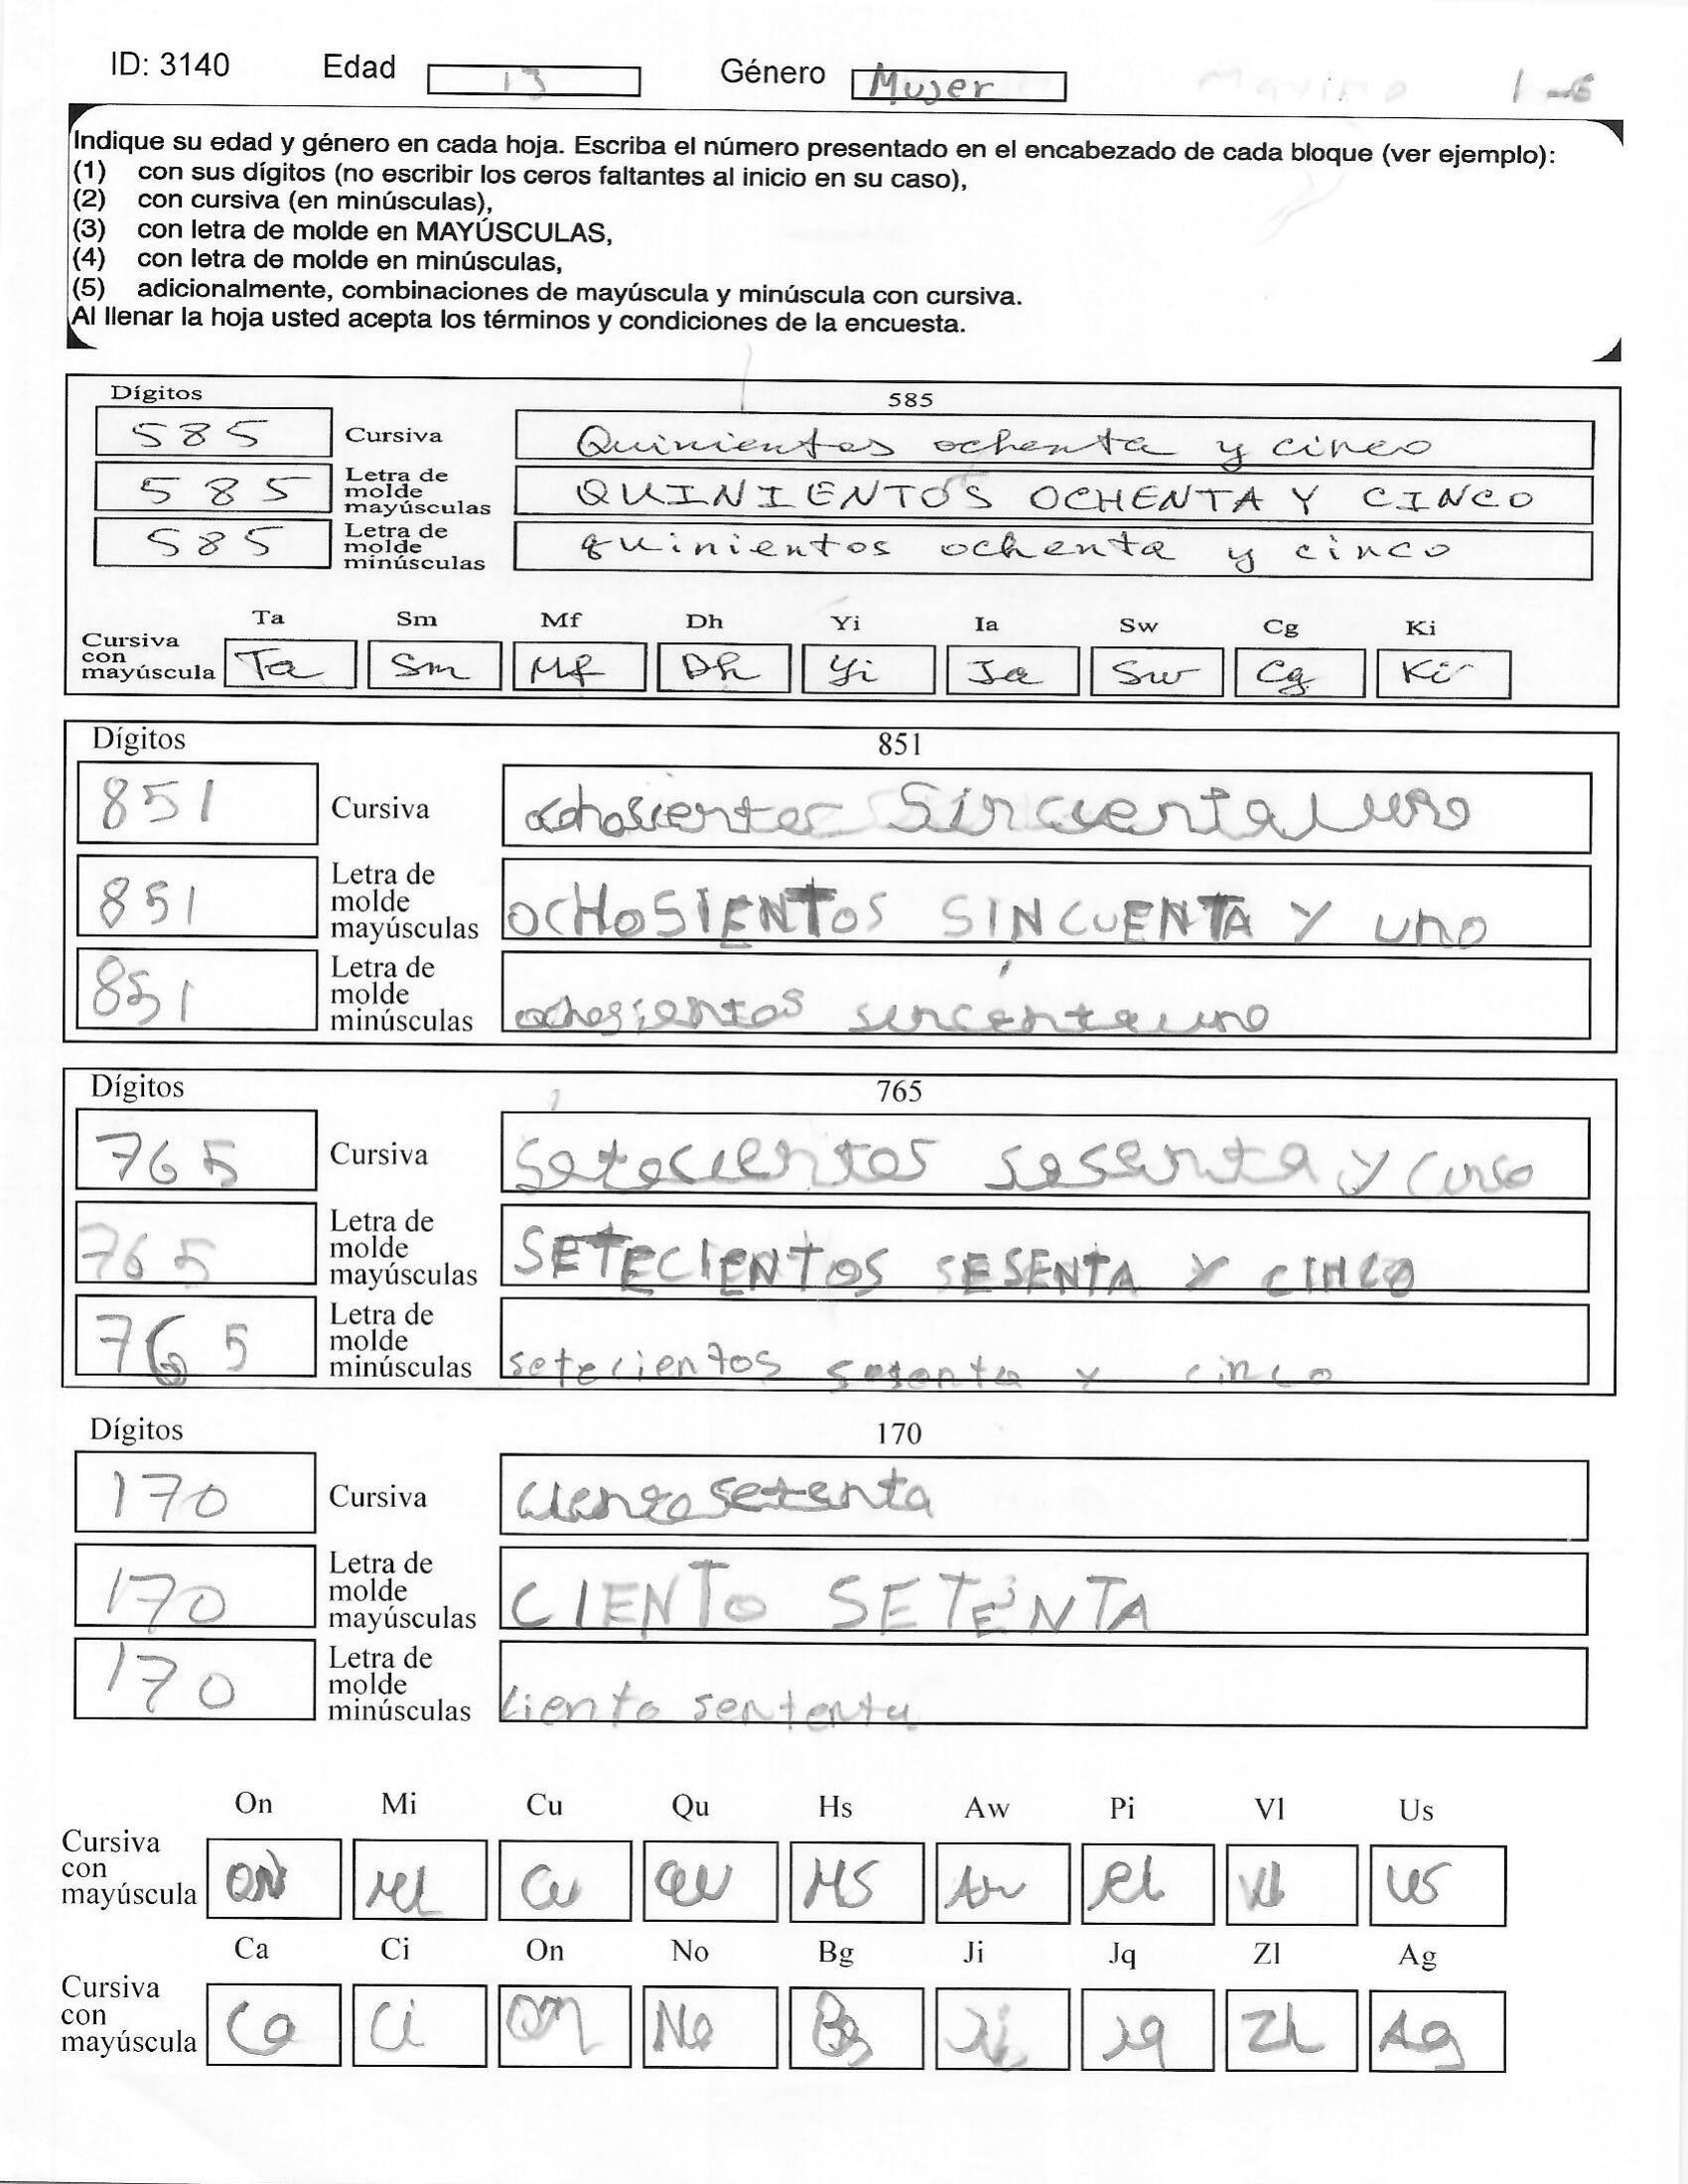 ID: 3140 Edad 13 Género Mujer 1-6
Indique su edad y género en cada hoja. Escriba el número presentado en el encabezado de cada bloque (ver ejemplo):
(1) con sus dígitos (no escribir los ceros faltantes al inicio en su caso),
(2) con cursiva (en minúsculas),
(3) con letra de molde en MAYÚSCULAS,
(4) con letra de molde en minúsculas,
(5) adicionalmente, combinaciones de mayúscula y minúscula con cursiva.
Al llenar la hoja usted acepta los términos y condiciones de la encuesta.
Dígitos 585
585 Cursiva Quinientos ochenta y cinco
585 Letra de molde mayúsculas QUINIENTOS OCHENTA Y CINCO
585 Letra de molde minúsculas quinientos ochenta y cinco
Ta Sm Mf Dh Yi Ia Sw Cg Ki
Cursiva con mayúscula Ta Sm Mf Dh Yi Ia Sw Cg Ki
Dígitos 851
851 Cursiva ochosientos Sincuenta y uno
851 Letra de molde mayúsculas OCHOSIENTOS SINCUENTA Y UnO
851 Letra de molde minúsculas ochosientos
Dígitos 765
765 Cursiva Setecientos sesenta y
765 Letra de molde mayúsculas SETECIENTOS SESENTA Y CINCO
765 Letra de molde minúsculas setecientos sesenta y cinco
Dígitos 170
170 Cursiva ciento setenta
170 Letra de molde mayúsculas CIENTO SETENTA
170 Letra de molde minúsculas ciento sententa
On Mi Cu Qu Hs Aw Pi Vl Us
Cursiva con mayúscula ON Mi Cu Qu HS Aw Pi Vl US
Ca Ci On No Bg Ji Jq Zl Ag
Cursiva con mayúscula Ca Ci On No Bg Ji Jq Zl Ag